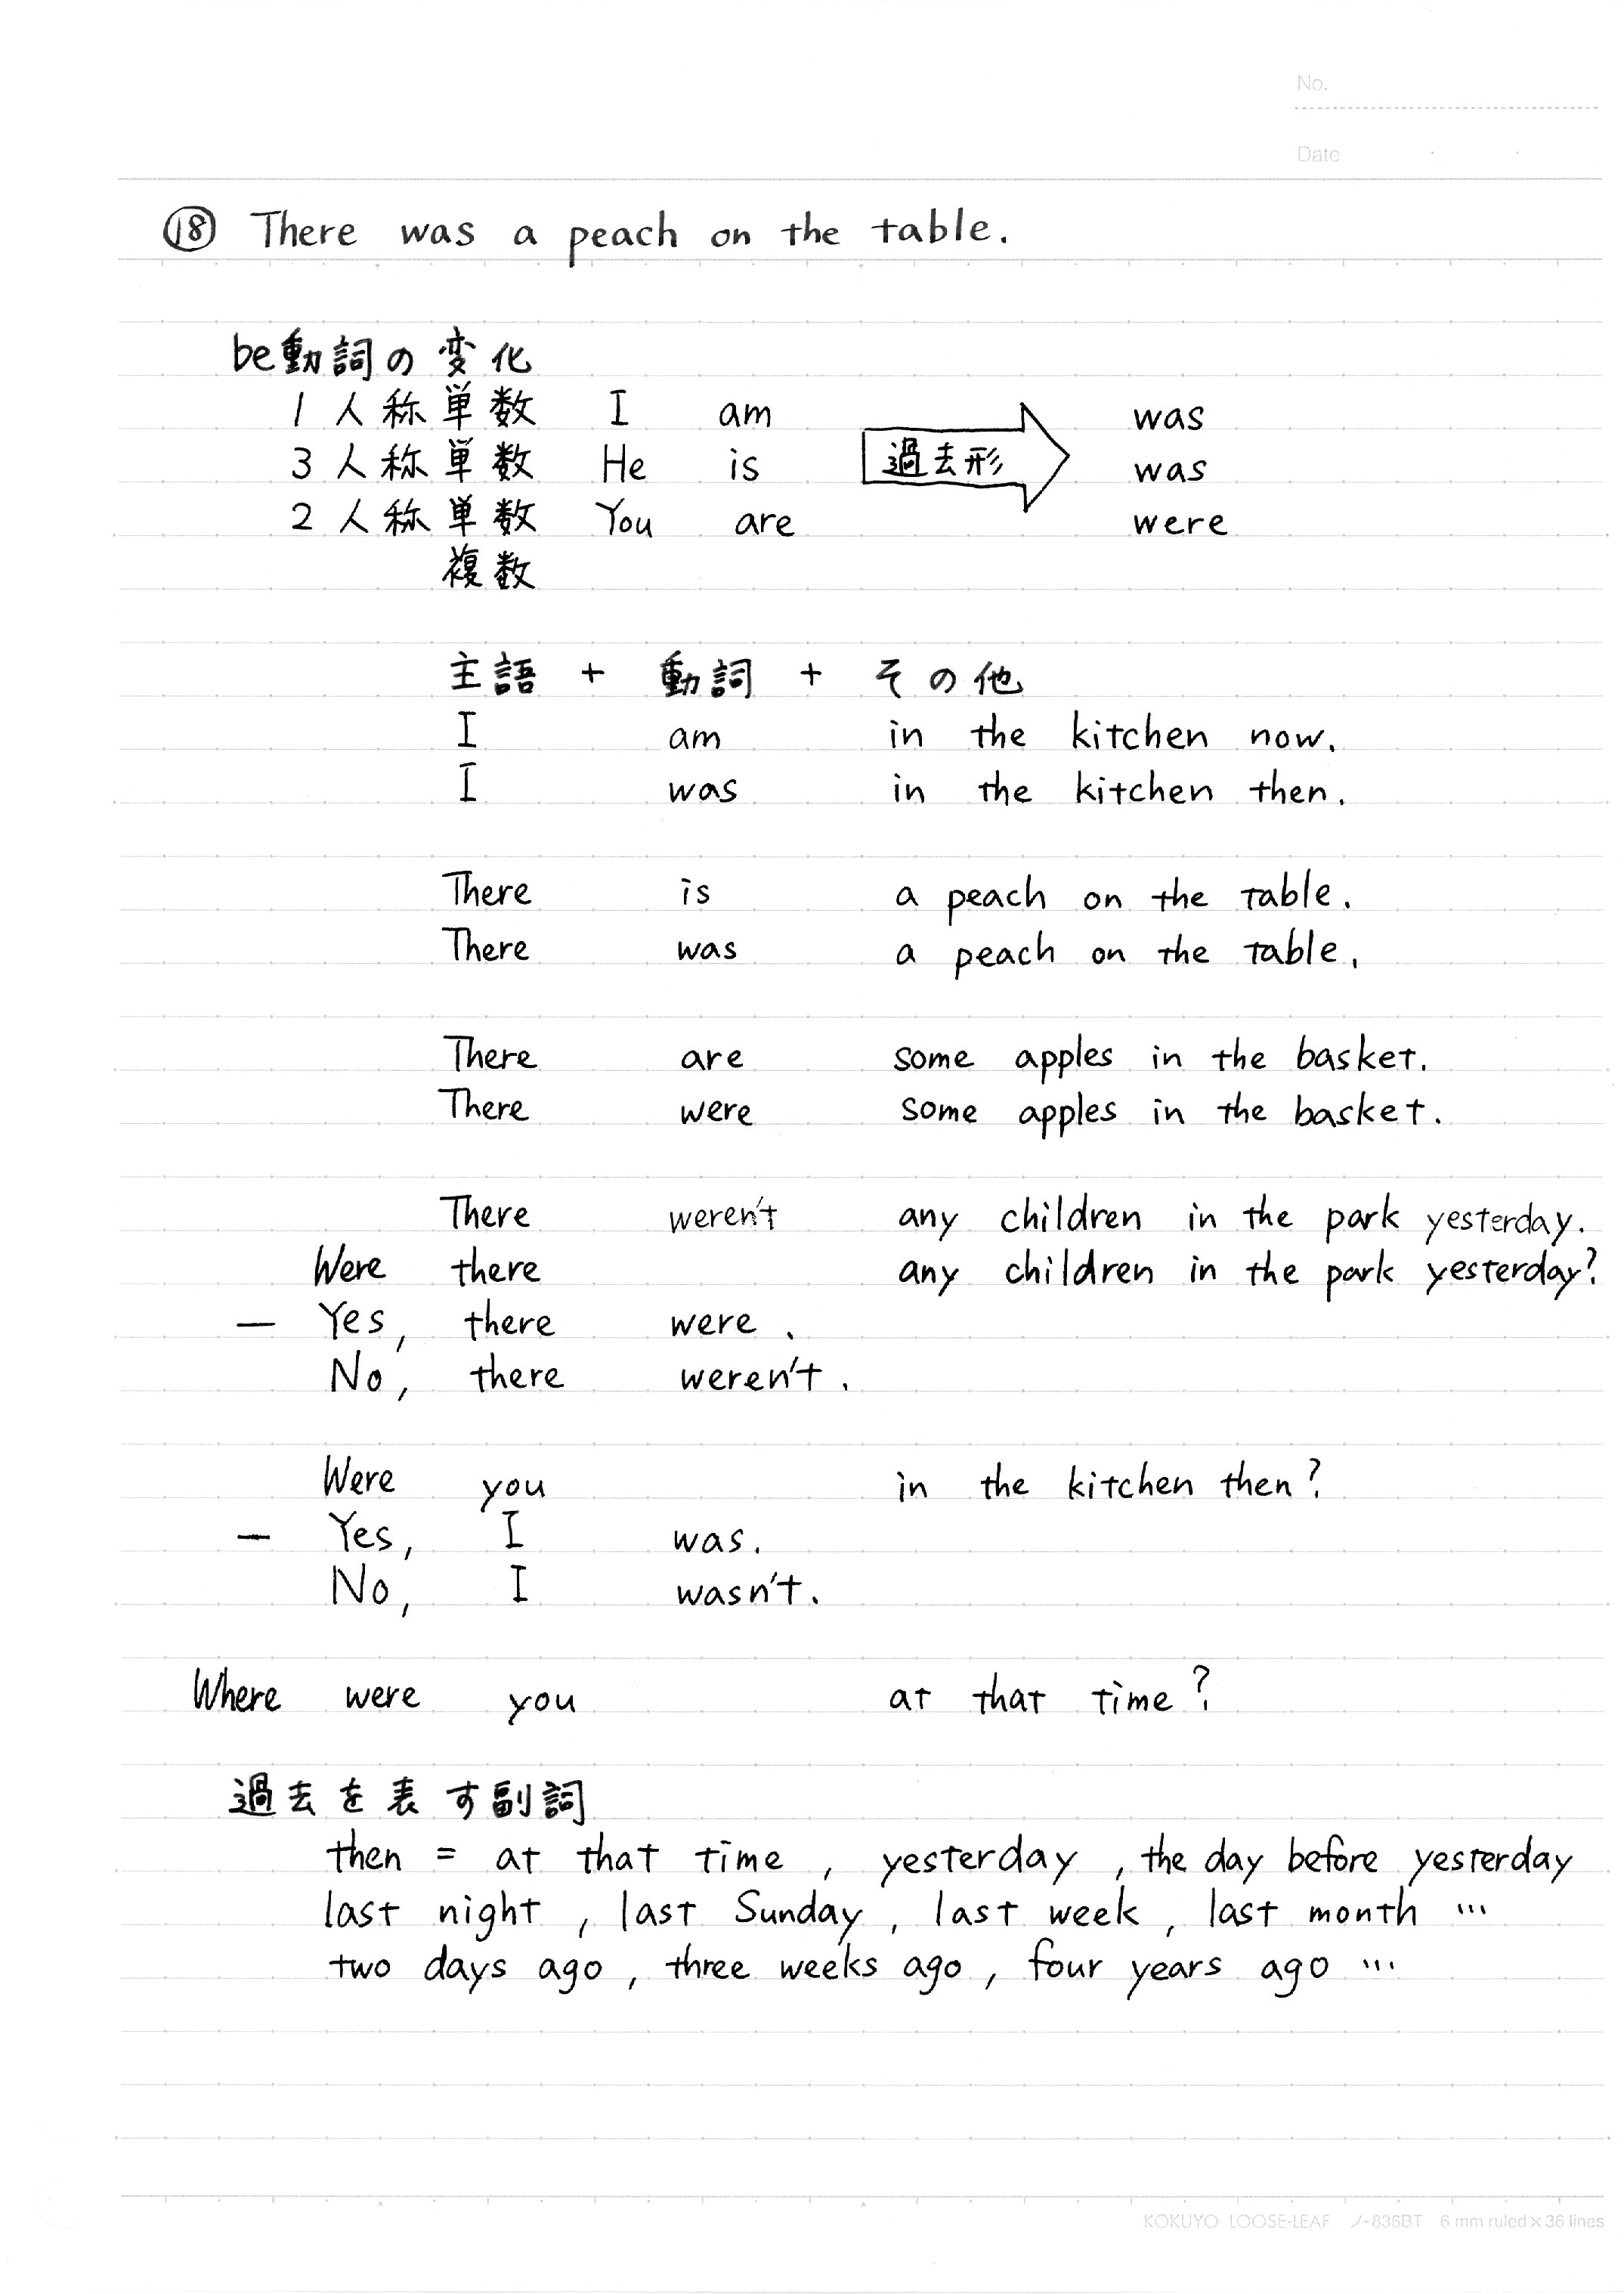 No.
Date
⑱ There was a peach on the table.
be動詞の変化
1人称単数 I am 過去形 was
3人称単数 He is was
2人称単数 You are were
複数
主語 + 動詞 + その他
I am in the kitchen now.
I was in the kitchen then.
There is a peach on the table.
There was a peach on the table.
There are some apples in the basket.
There were some apples in the basket.
There weren't any children in the park yesterday.
Were there any children in the park yesterday?
— Yes, there were.
No, there weren't.
Were you in the kitchen then?
— Yes, I was.
No, I wasn't.
Where were you at that time?
過去を表す副詞
then = at that time, yesterday, the day before yesterday
last night, last Sunday, last week, last month …
two days ago, three weeks ago, four years ago …
KOKUYO LOOSE-LEAF ノ-836BT 6 mm ruled × 36 lines